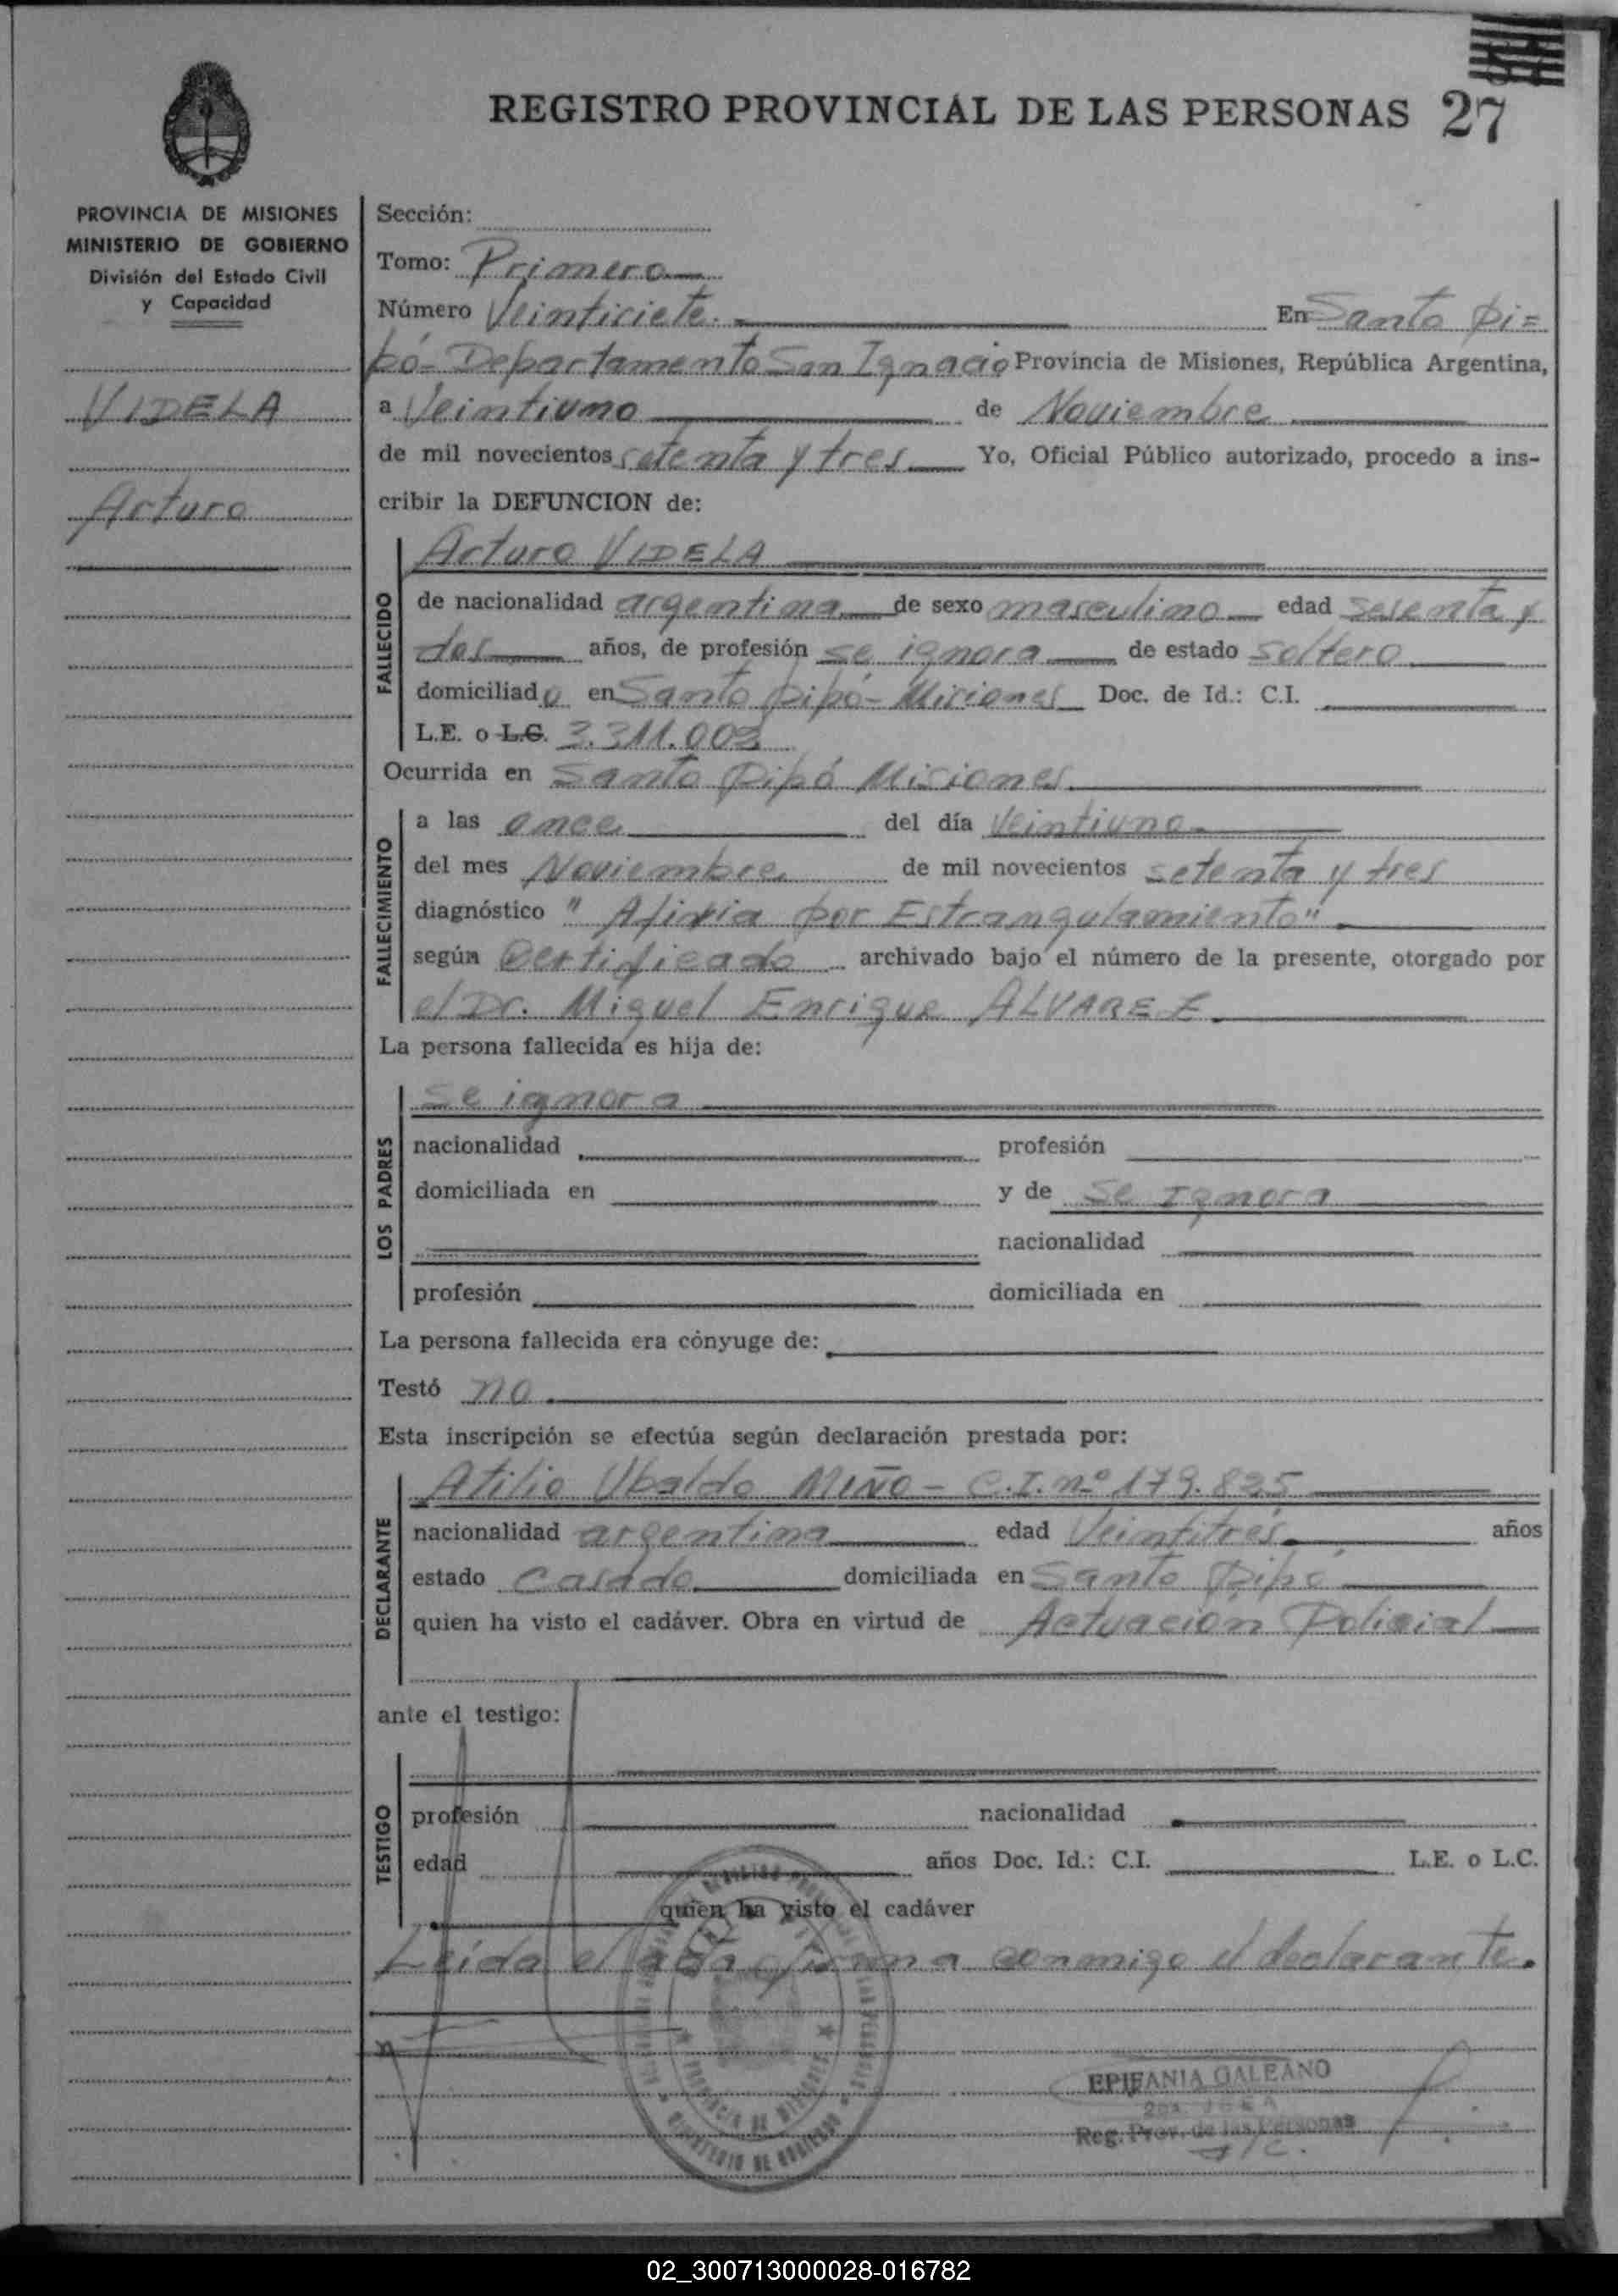 REGISTRO PROVINCIAL DE LAS PERSONAS 27
PROVINCIA DE MISIONES
MINISTERIO DE GOBIERNO
División del Estado Civil
y Capacidad
VIDELA
Arturo
Sección:
Tomo: Primero
Número Veinticiete. En Santo Pi=
pó- Departamento San Ignacio Provincia de Misiones, República Argentina,
a Veintiuno de Noviembre
de mil novecientos setenta y tres Yo, Oficial Público autorizado, procedo a ins-
cribir la DEFUNCION de:
Arturo VIDELA
FALLECIDO
de nacionalidad argentina de sexo masculino edad sesenta y
dos años, de profesión se ignora de estado soltero
domiciliado en Santo Pipó- Misiones Doc. de Id.: C.I.
L.E. o L.C. 3.311.003
Ocurrida en Santo Pipó Misiones
FALLECIMIENTO
a las once del día Veintiuno
del mes Noviembre de mil novecientos setenta y tres
diagnóstico " Afixia por Estrangulamiento"
según Certificado archivado bajo el número de la presente, otorgado por
el Dr. Miguel Enrique ALVAREZ
La persona fallecida es hija de:
LOS PADRES
Se ignora
nacionalidad profesión
domiciliada en y de Se Ignora
nacionalidad
profesión domiciliada en
La persona fallecida era cónyuge de:
Testó no
Esta inscripción se efectúa según declaración prestada por:
DECLARANTE
Atilio Ubaldo MIÑO - C.I. nº 179.825
nacionalidad argentina edad Veintitrés años
estado Casado domiciliada en Santo Pipó
quien ha visto el cadáver. Obra en virtud de Actuación Policial
ante el testigo:
TESTIGO
profesión nacionalidad
edad años Doc. Id.: C.I. L.E. o L.C.
quien ha visto el cadáver
Leída el acta firma conmigo el declarante.
EPIFANIA GALEANO
Reg. Prov. de las Personas
PROVINCIA DE MISIONES
MINISTERIO DE GOBIERNO
02_300713000028-016782